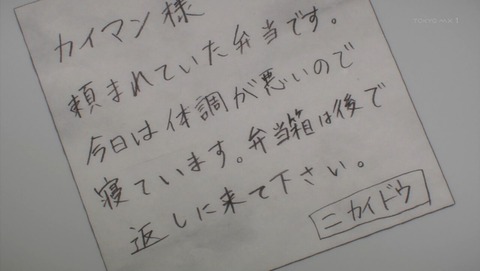 カイマン様
頼まれていた弁当です。
今日は体調が悪いので
寝ています。弁当箱は後で
返しに来て下さい。
ニカイドウ